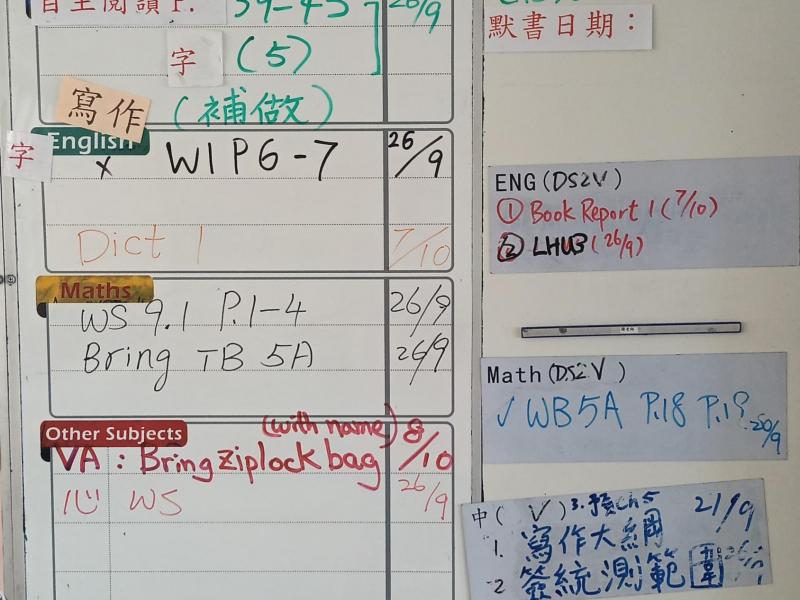 自主閱讀 P. 39-45 26/9
字 (5)
寫作 (補做)
English
字 WIP6-7 26/9
Dict 1 7/10
Maths
WS 9.1 P.1-4 26/9
Bring TB 5A 26/9
Other Subjects
(with name)
VA : Bring ziplock bag 8/10
心 WS 26/9
默書日期：
ENG (DS2V)
① Book Report 1 (7/10)
② LHUB (26/9)
Math (DS2V)
✓ WB5A P.18 P.19 20/9
中( V ) 3. 預ch5 21/9
1. 寫作大綱
2 簽統測範圍